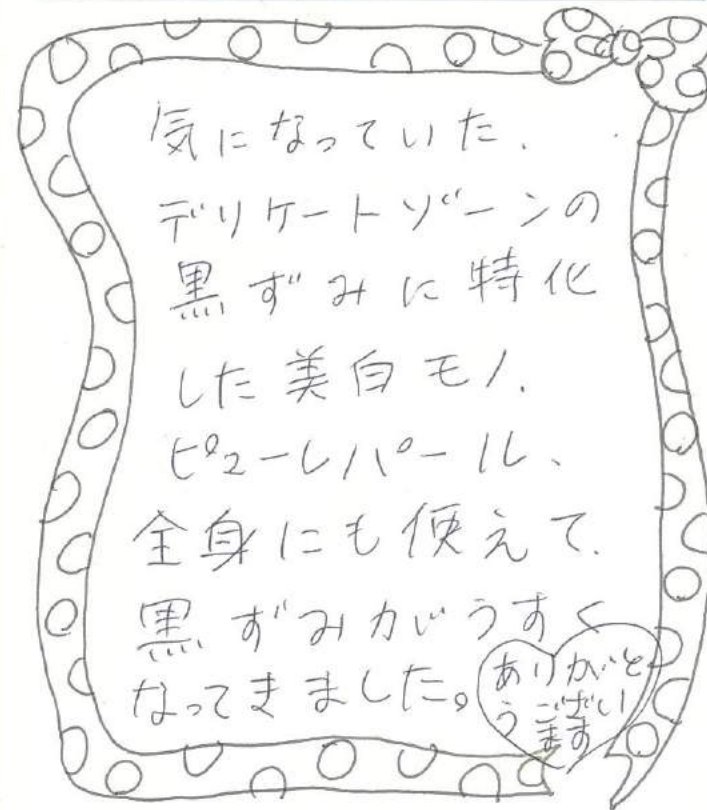 気になっていた、
デリケートゾーンの
黒ずみに特化
した美白モノ、
ピューレパール、
全身にも使えて、
黒ずみがうすく
なってきました。
ありがと
うござい
ます